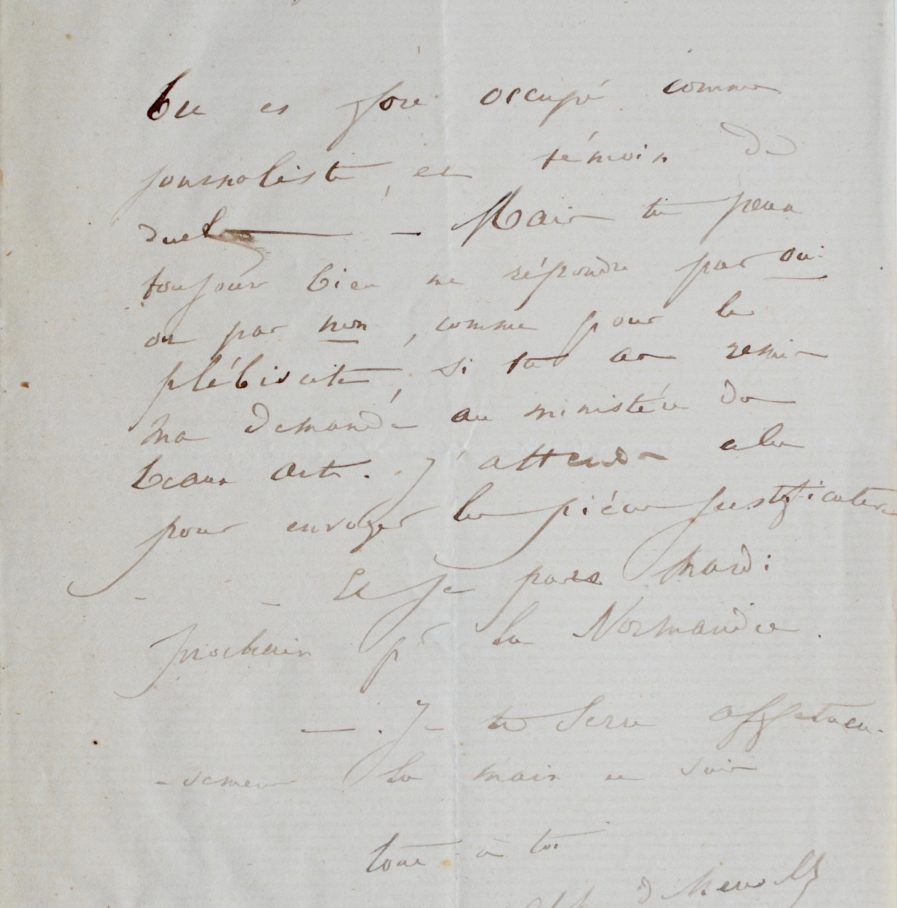 tu es fort occupé comme
journaliste, et témoin de
duels — Mais tu peux
toujours bien me répondre par oui
ou par non, comme pour le
plébiscite, si tu as remis
ma demande au ministère des
beaux arts. J'attends cela
pour envoyer les pièces justificatives
- - Et je pars mardi
prochain pr la Normandie.
— . Je te serre affectueu-
-sement la main et suis
tout à toi